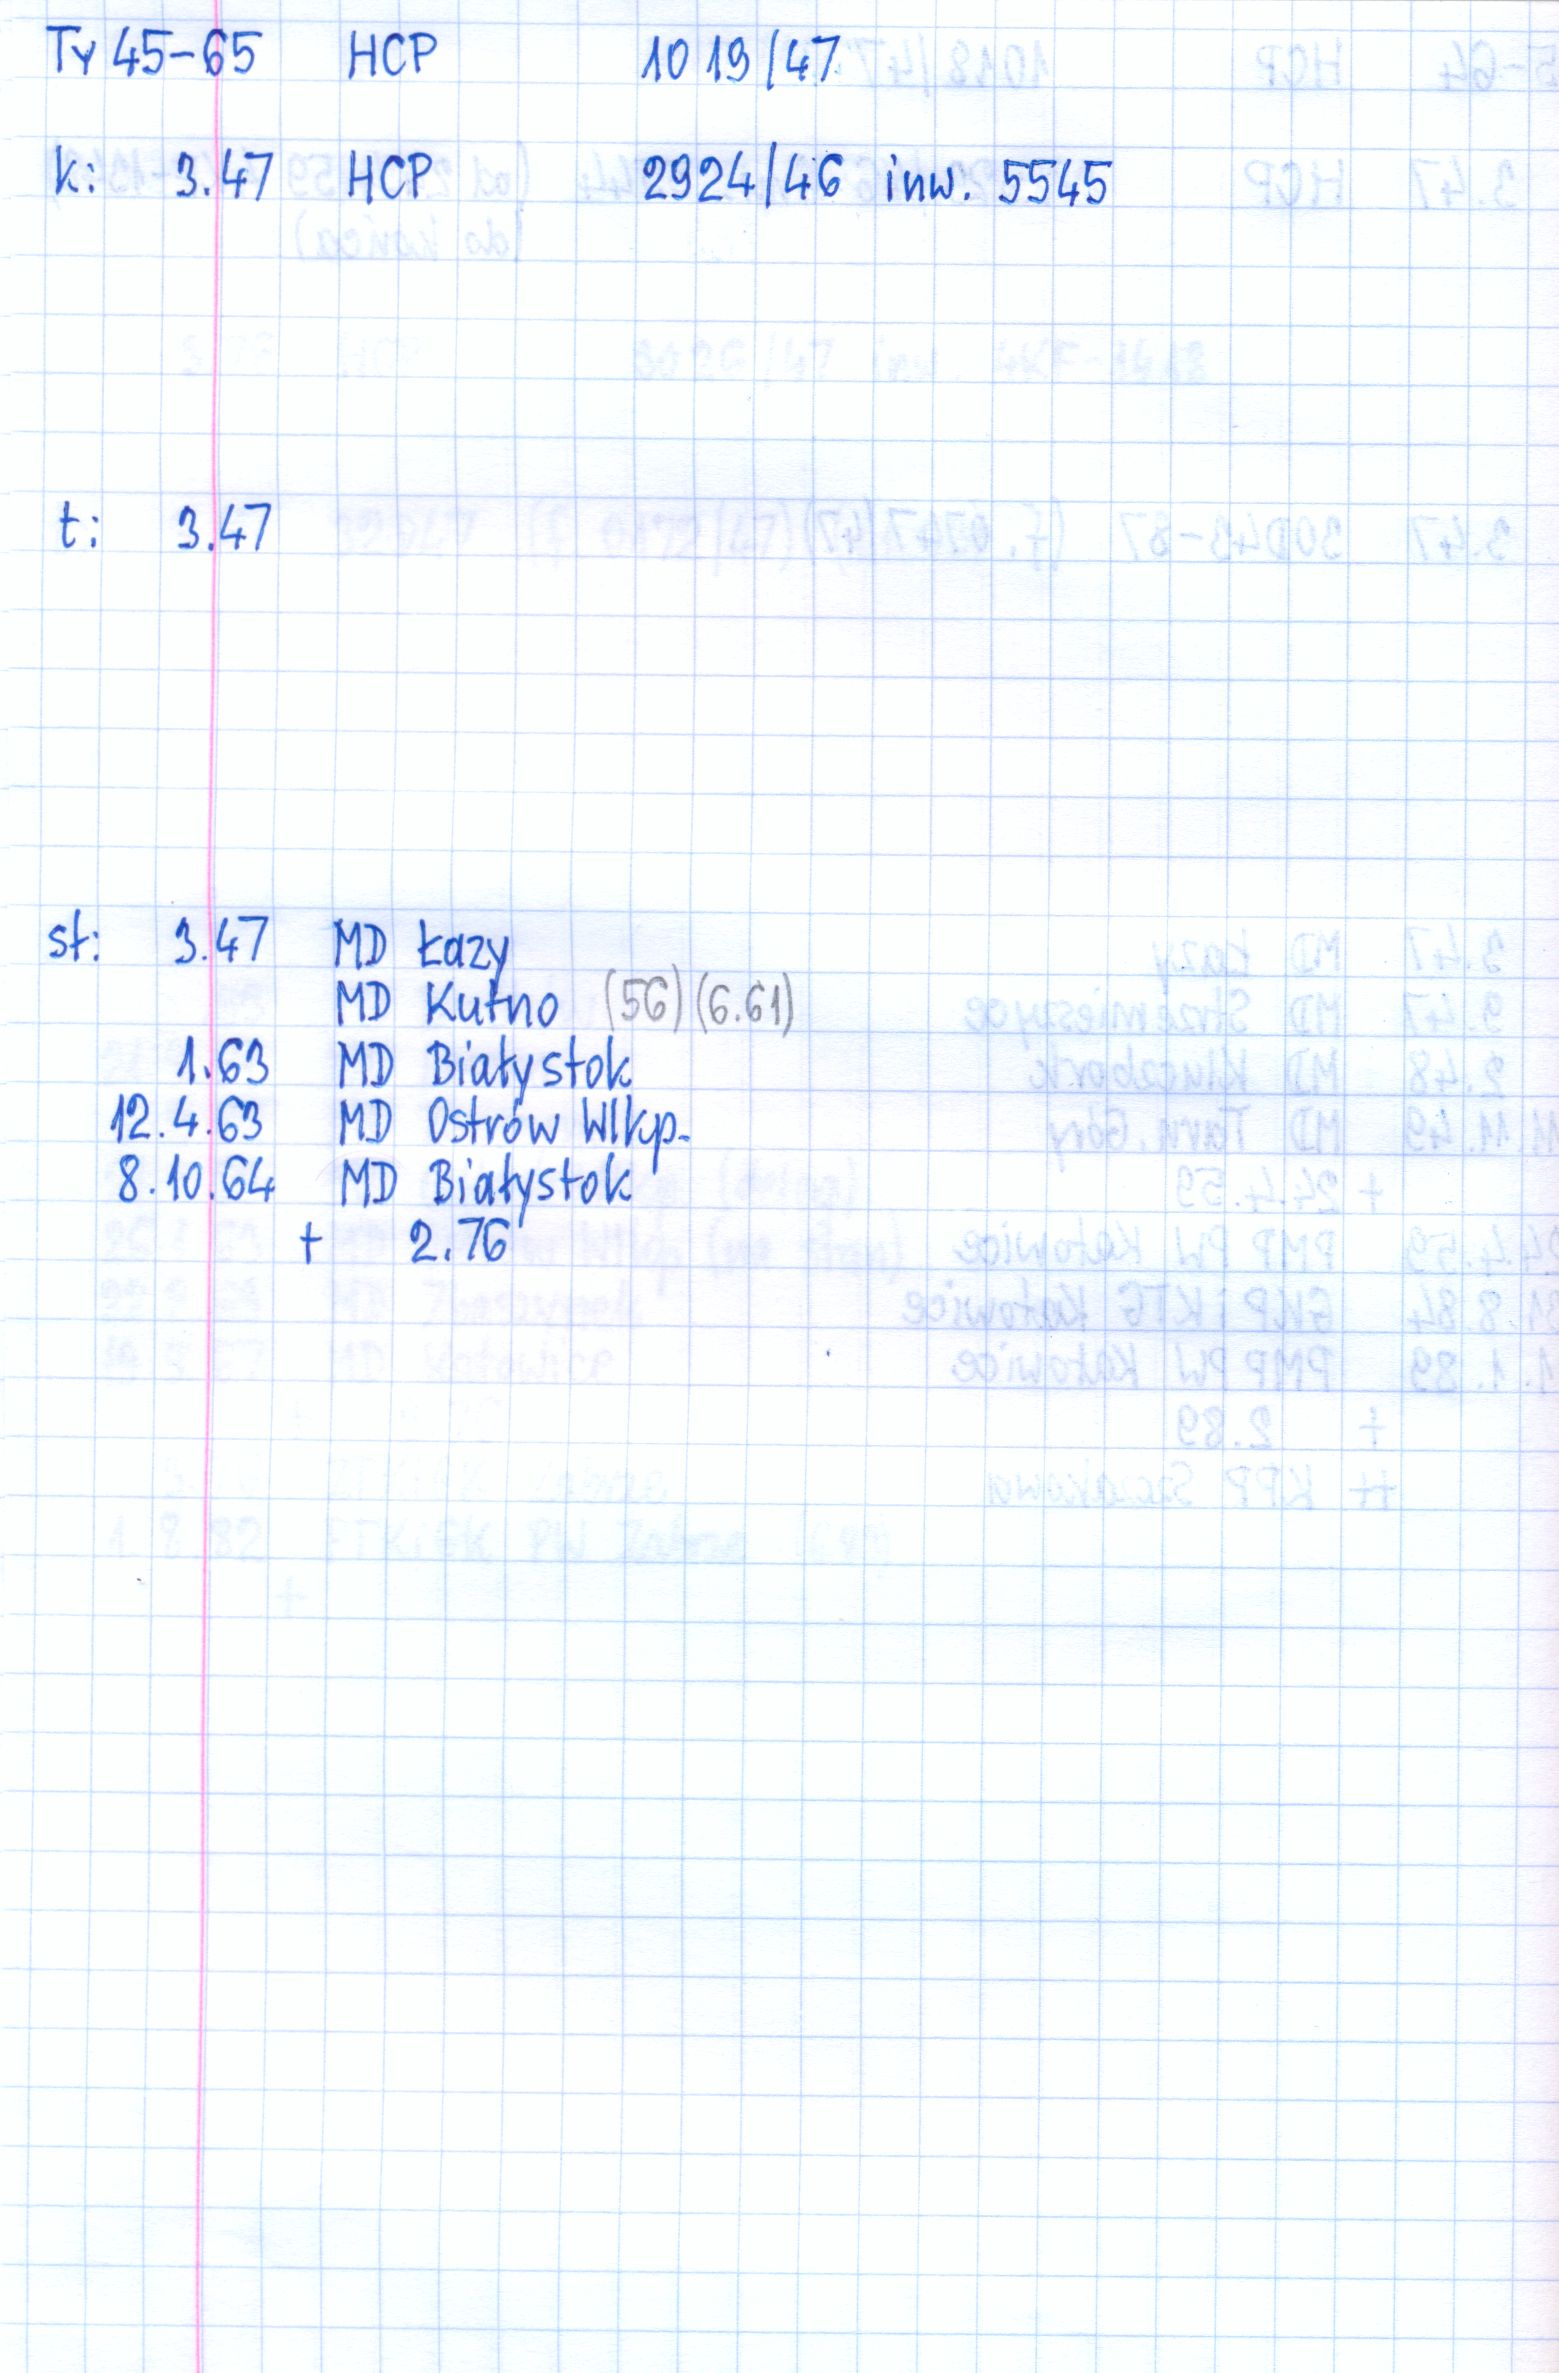 Ty 45-65 HCP 1019/47
k: 3.47 HCP 2924/46 inw. 5545
t: 3.47
st: 3.47 MD Łazy
MD Kutno (56) (6.61)
1.63 MD Białystok
12.4.63 MD Ostrów Wlkp.
8.10.64 MD Białystok
+ 2.76